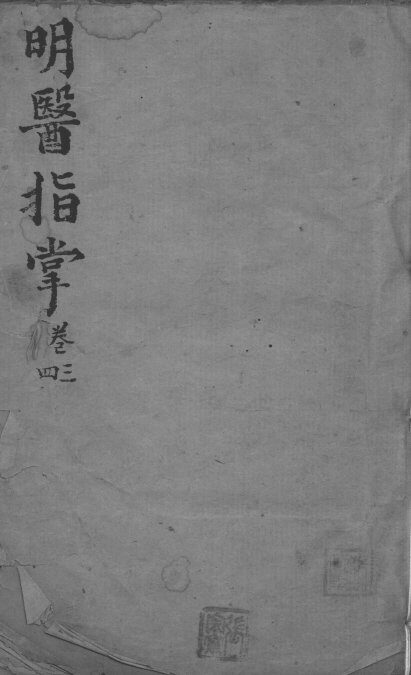 明醫指掌
卷三四